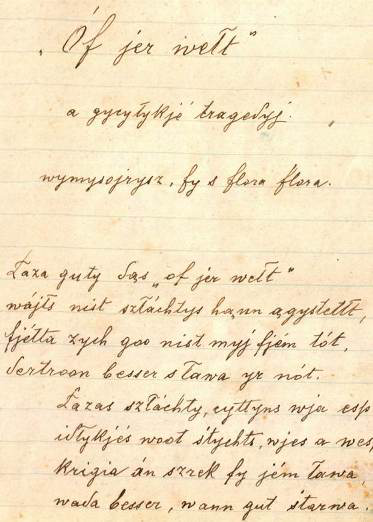 „Óf jer wełt"
a gycyłykjé tragedyj.
wymysojrysz, fy s flora flora.
Łaza guty dos „of jer wełt"
wájts nist szłáchtys hann agystełłt,
fjétta zych goo nist myj fjém tót,
dertroon besser sława yr nót.
Łazas szłáchty, cyttyns wja esp
idłykjés woot śtychts, wjes a wesp,
krigia án szrek fy jém ława,
wada besser, wann gut śtarwa.